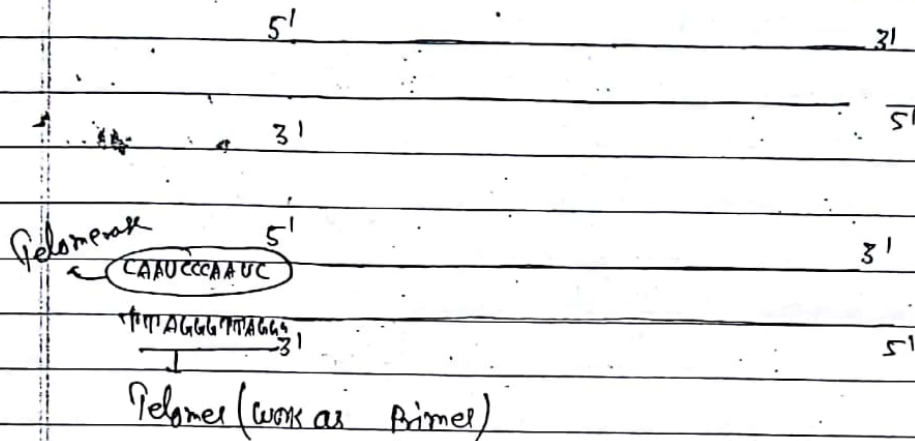 5' 3'
5'
3'
5' 3'
Telomerase
CAAUCCCAAUC
TTAGGGTTAGGG
3' 5'
Telomer (work as Primer)